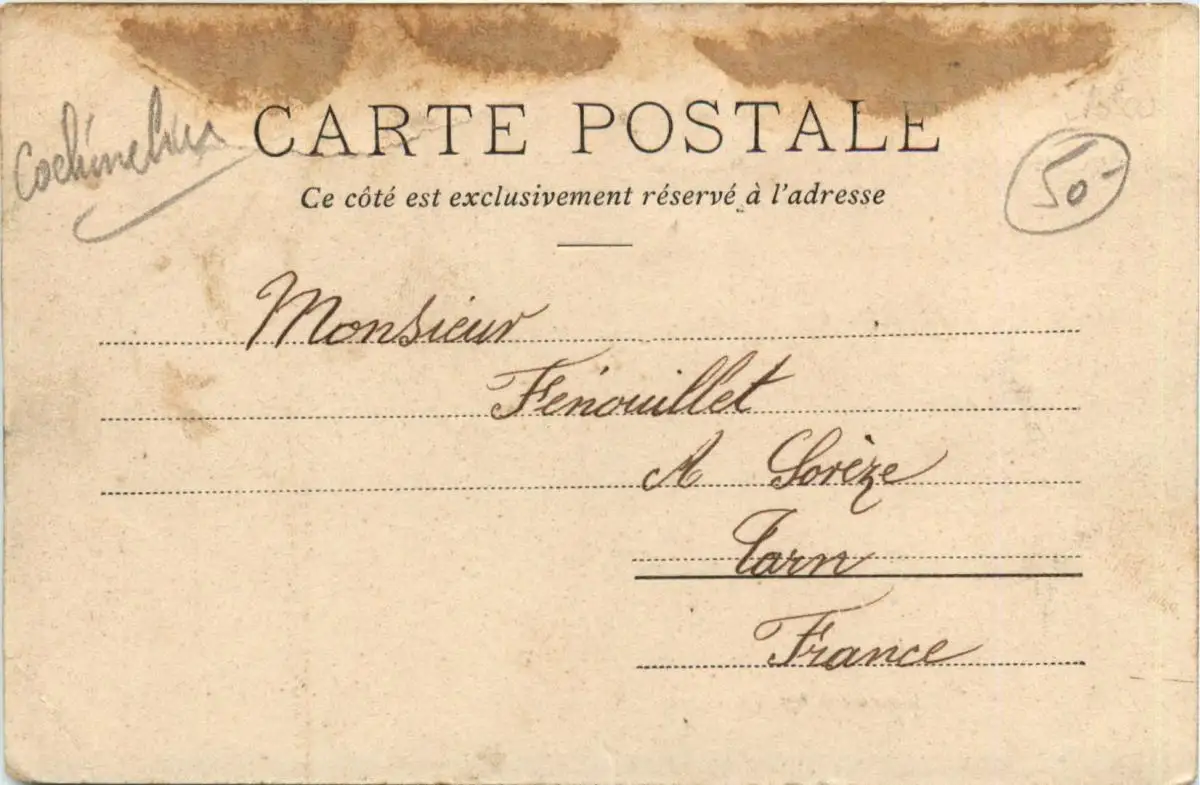 CARTE POSTALE
Cochinchine
Ce côté est exclusivement réservé à l'adresse
50-
Monsieur
Fenouillet
A Sorèze
Tarn
France